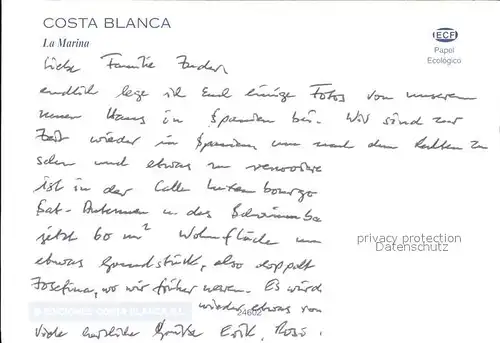 COSTA BLANCA
La Marina
ECF
Papel
Ecológico
Liebe Familie
endlich lege ich Euch einige Fotos von unserem
neuen Haus in Spanien bei. Wir sind zur
Zeit wieder in Spanien um nach dem Rechten zu
sehen und etwas zu
ist in der Calle
Sat-Antennen u. das
jetzt 60 m² Wohnfläche
etwas Grundstück, also doppelt
Josefina, wo wir früher waren. Es würd
wieder etwas von
Viele herzliche Grüße Erik, Rosi.
privacy protection
Datenschutz
EDICIONES COSTA BLANCA S.L.
24602